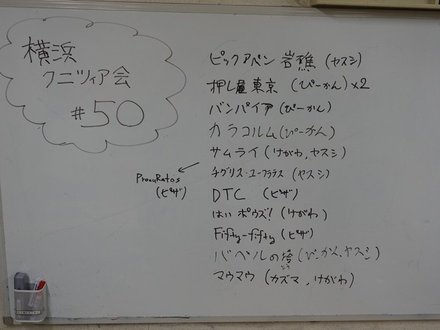 横浜
クニツィア会
#50
ピックアペン 岩礁 (ヤスシ)
押し屋東京 (ぴーかん)×2
バンパイア (ぴーかん)
カラコルム(ぴーかん)
サムライ (けがわ、ヤスシ)
チグリス・ユーフラテス (ヤスシ)
ProcuRatos
(ピザ)
DTC (ピザ)
はい ポウズ! (けがわ)
Fifty-fifty (ピザ)
バベルの塔 (ぴーかん,ヤスシ)
マウマウ (カズマ,けがわ)